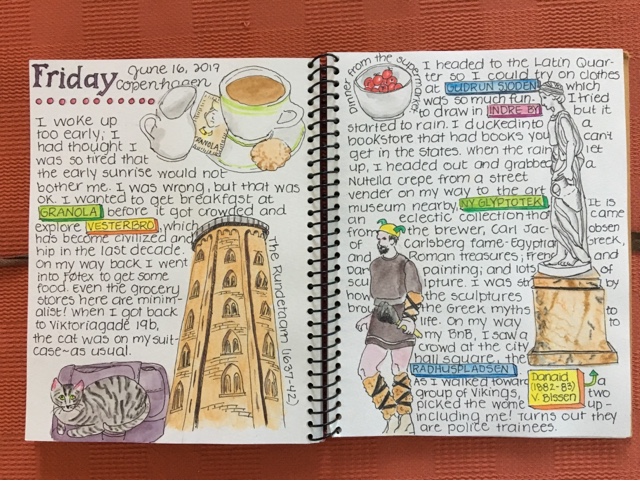 Friday
June 16, 2017
Copenhagen
I woke up
too early; I
had thought I
was so tired that
the early sunrise would not
bother me. I was wrong, but that was
OK. I wanted to get breakfast at
GRANOLA before it got crowded and
explore VESTERBRO, which
has become civilized and
hip in the last decade.
On my way back I went
into Føtex to get some
food. Even the grocery
stores here are minim-
alist! When I got back
to Viktoriagade 19b,
the cat was on my suit-
case~as usual.
The Rundetaarn (1637-42)
GRANOLA
Dinner from the supermarket
I headed to the Latin Quar-
ter so I could try on clothes
at GUDRUN SJODEN which
was so much fun. I tried
to draw in INDRE BY but it
started to rain. I ducked into a
bookstore that had books you can't
get in the States. When the rain let
up, I headed out and grabbed a
Nutella crepe from a street
vender on my way to the art
museum nearby, NY GLYPTOTEK. It is
an eclectic collection that came
from the brewer, Carl Jacobsen
of Carlsberg fame-Egyptian, Greek,
and Roman treasures; French and
Danish painting; and lots of
sculpture. I was struck by
how the sculptures
brought the Greek myths to
life. On my way to
my BnB, I saw a
crowd at the city
hall square, the
RADHUSPLADSEN
As I walked toward a
group of Vikings, two
picked the women up-
including me! Turns out they
are police trainees.
Danaid
(1882-83)
V. Bissen